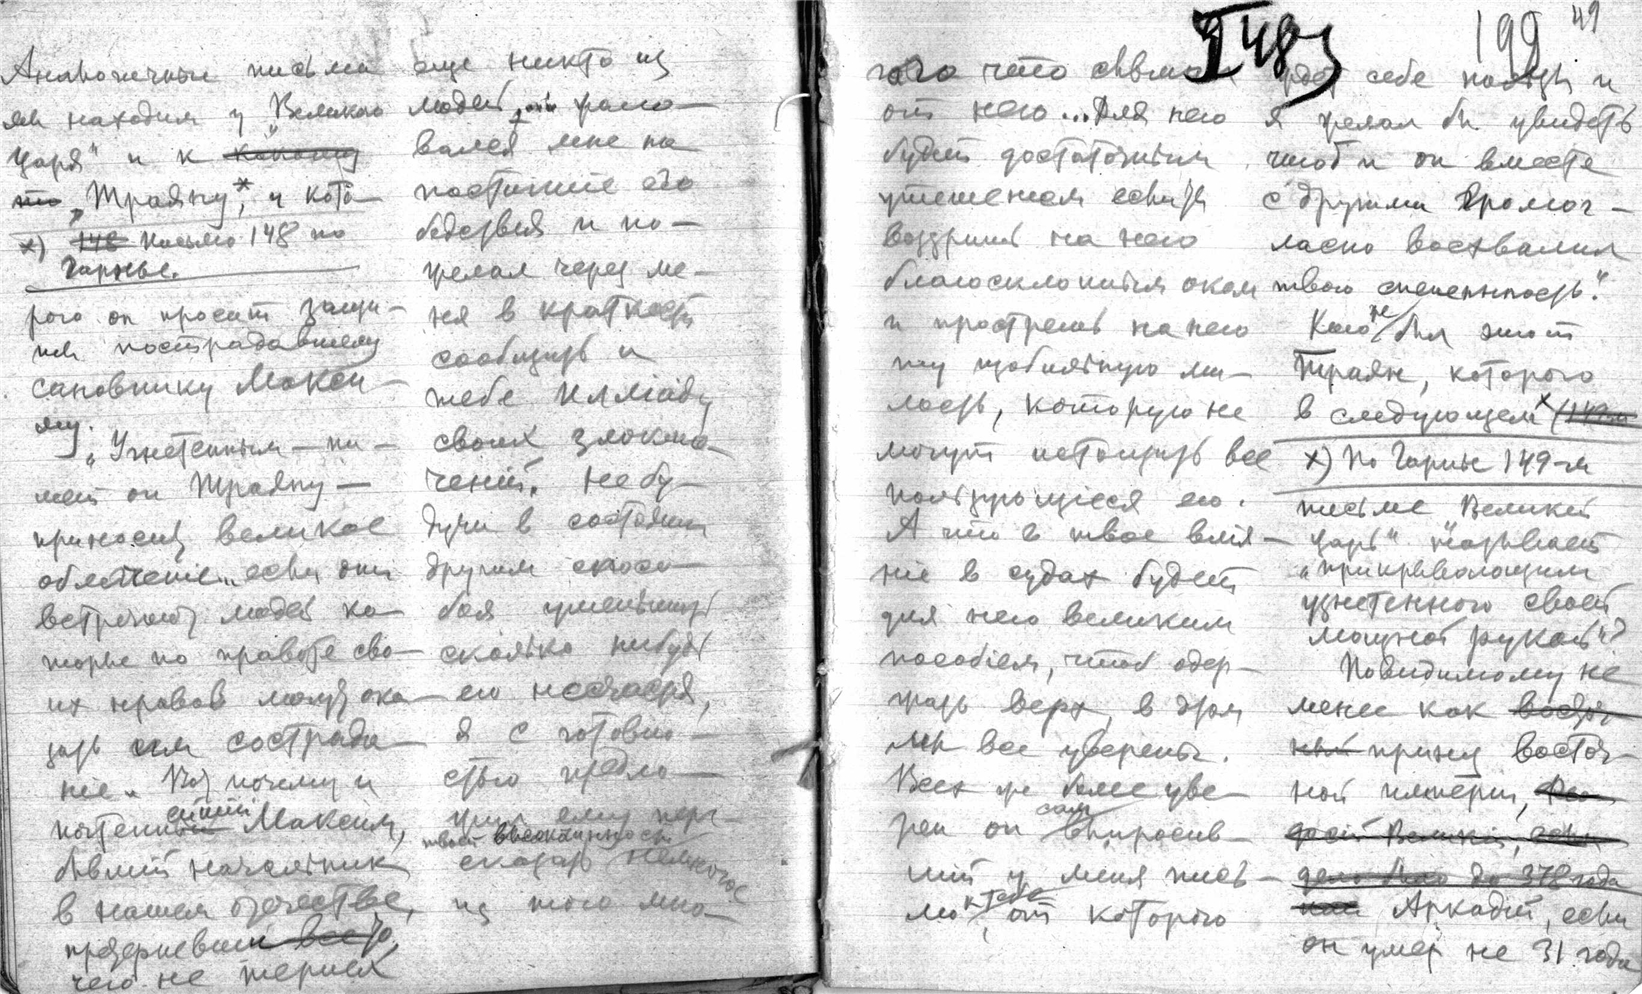 Аналогичные письма
мы находим у „Великаго
царя" и к
„Траяну",* у кото-
х) письмо 148 по
Гарнье.
рого он просит защи-
ты пострадавшему
сановнику Макси-
му.
„Угнетенным — пи-
шет он Траяну —
приносит великое
облегчение, если они
встречают людей ко-
торые по правоте сво-
их нравов могут ока-
зать им сострада-
ние. Вот почему и
почтеннейший Максим,
бывший начальник
в нашем отечестве,
претерпевший
чего не терпел
еще никто из
людей, жало-
вался мне на
постигшие его
бедствия и по-
желал через ме-
ня в краткости
сообщить и
тебе Иллиаду
своих злоклю-
чений. Не бу-
дучи в состоянии
другим спосо-
бом уменьшить
сколько нибудь
его несчастья,
я с готовно-
стью предло-
жил ему пере-
твоей
сказать немногое
из того мно-
гого что слышал
от него... Для него
будет достаточным
утешением если ты
воззришь на него
благосклонным оком
и прострешь на него
ту обильную ми-
лость, которую не
могут истощить все
пользующиеся ею.
А что твое влия-
ние в судах будет
для него великим
пособием, чтоб одер-
жать верх, в этом
мы все уверены.
Всех же более уве-
рен он сам выпросив-
ший у меня пись-
мо к тебе, от которого
I 483 199 49
ждет себе пользы и
я желал бы увидеть
чтоб и он вместе
с другими громог-
ласно восхвалил
твою степенность."
Кто же был этот
Траян, которого
в следующем х
х) По Гарнье 149-м
письме „Великий
царь" называет
„прикрывающим
угнетенного своей
мощной рукой"?
Повидимому не
менее как
принц восточ-
ной империи,
дело было до 378 года
Аркадий, если
он умер не 31 года